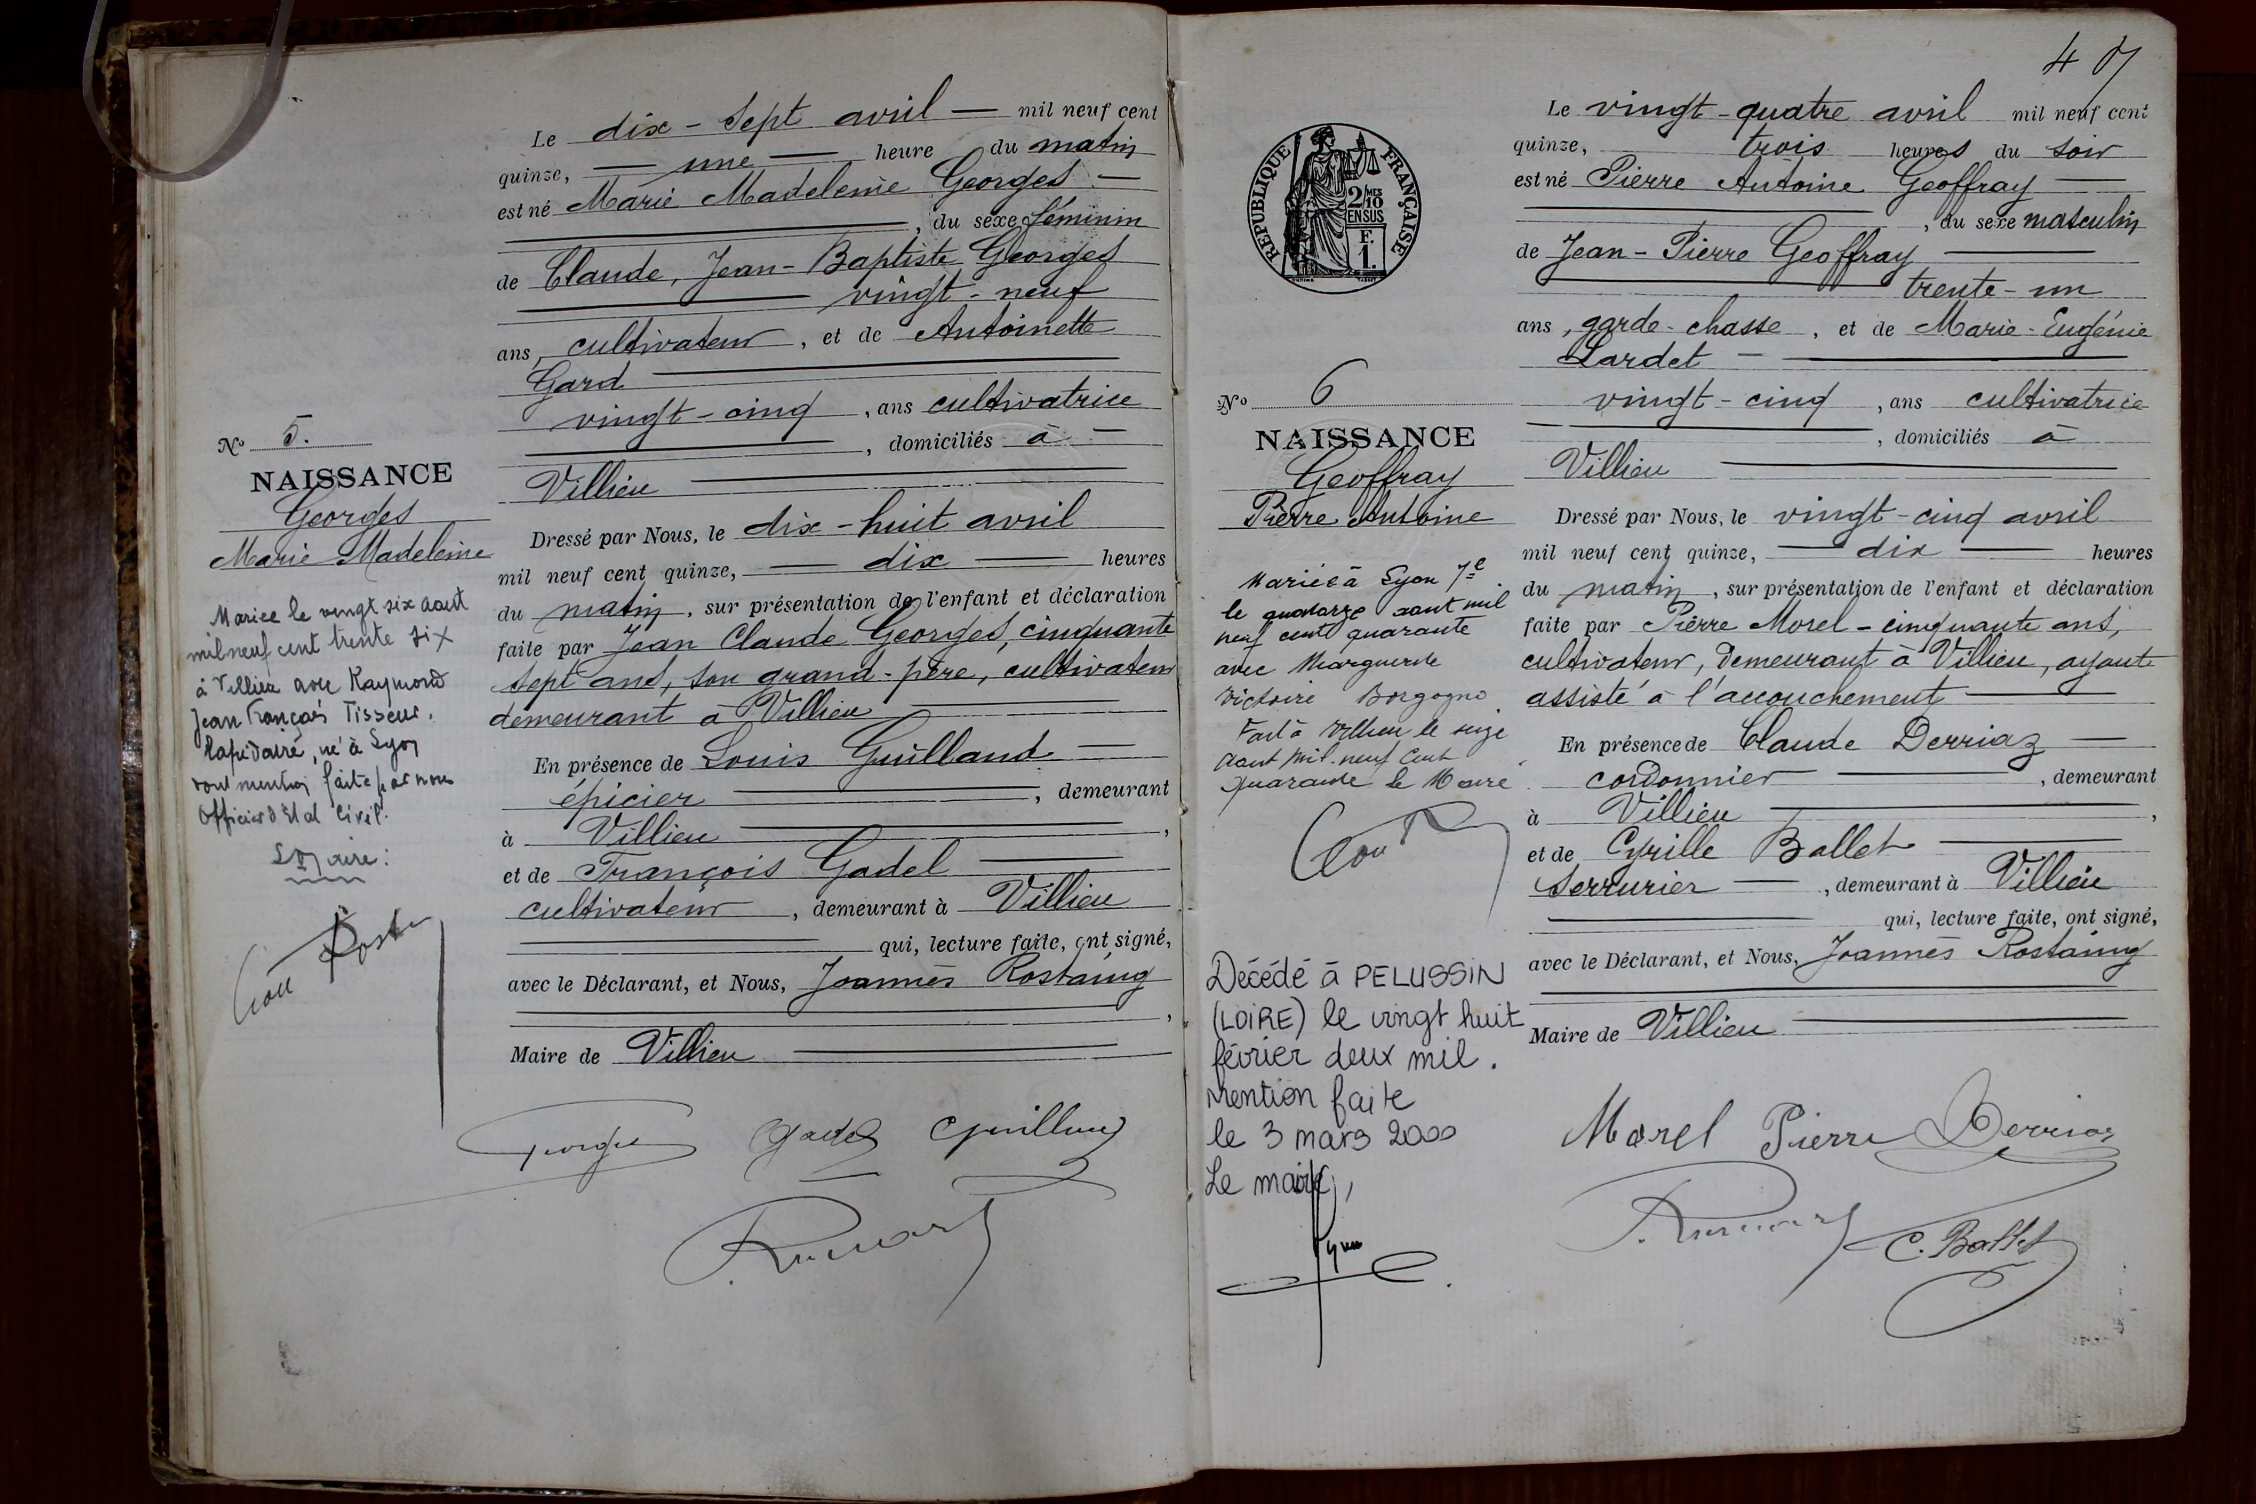 Le dix-sept avril — mil neuf cent
quinze, — une — heure du matin
est né Marie Madeleine Georges —
, du sexe féminin
de Claude, Jean-Baptiste Georges
vingt-neuf
ans, cultivateur, et de Antoinette
Gard
vingt-cinq, ans cultivatrice
, domiciliés à —
Villieu
Dressé par Nous, le dix-huit avril
mil neuf cent quinze, — dix — heures
du matin, sur présentation de l'enfant et déclaration
faite par Jean Claude Georges, cinquante
sept ans, son grand-père, cultivateur
demeurant à Villieu
En présence de Louis Guilland —
épicier, demeurant
à Villieu,
et de François Gadel
cultivateur, demeurant à Villieu
qui, lecture faite, ont signé,
avec le Déclarant, et Nous, Joannès Rostaing
,
Maire de Villieu
Gadel Guilland
No 5.
NAISSANCE
Georges
Marie Madeleine
Mariee le vingt six aout
mil neuf cent trente six
à Villieu avec Raymond
Jean François Tisseur,
lapidaire, né à Lyon
dont mention faite par nous
Officier d'Etat Civil.
Le Maire:
4
Le vingt-quatre avril mil neuf cent
quinze, trois heures du soir
est né Pierre Antoine Geoffray —
, du sexe masculin
de Jean-Pierre Geoffray
trente-un
ans, garde-chasse, et de Marie-Eugénie
Lardet —
vingt-cinq, ans cultivatrice
, domiciliés à
Villieu
Dressé par Nous, le vingt-cinq avril
mil neuf cent quinze, — dix — heures
du matin, sur présentation de l'enfant et déclaration
faite par Pierre Morel - cinquante ans,
cultivateur, demeurant à Villieu, ayant
assisté à l'accouchement
En présence de Claude Derriaz —
cordonnier, demeurant
à Villieu,
et de Cyrille Ballet
serrurier —, demeurant à Villieu
qui, lecture faite, ont signé,
avec le Déclarant, et Nous, Joannès Rostaing
Maire de Villieu
Morel Pierre Derriaz
C. Ballet
RÉPUBLIQUE FRANÇAISE
2 MES
10
EN SUS
F.
1.
No 6
NAISSANCE
Geoffray
Pierre Antoine
Mariée à Lyon 7e
le quatorze aout mil
neuf cent quarante
avec Marguerite
Victoire Borgogno
Fait à Villieu le seize
Aout mil neuf cent
quarante le Maire
Décédé à PELUSSIN
(LOIRE) le vingt huit
février deux mil.
Mention faite
le 3 mars 2000
Le maire,